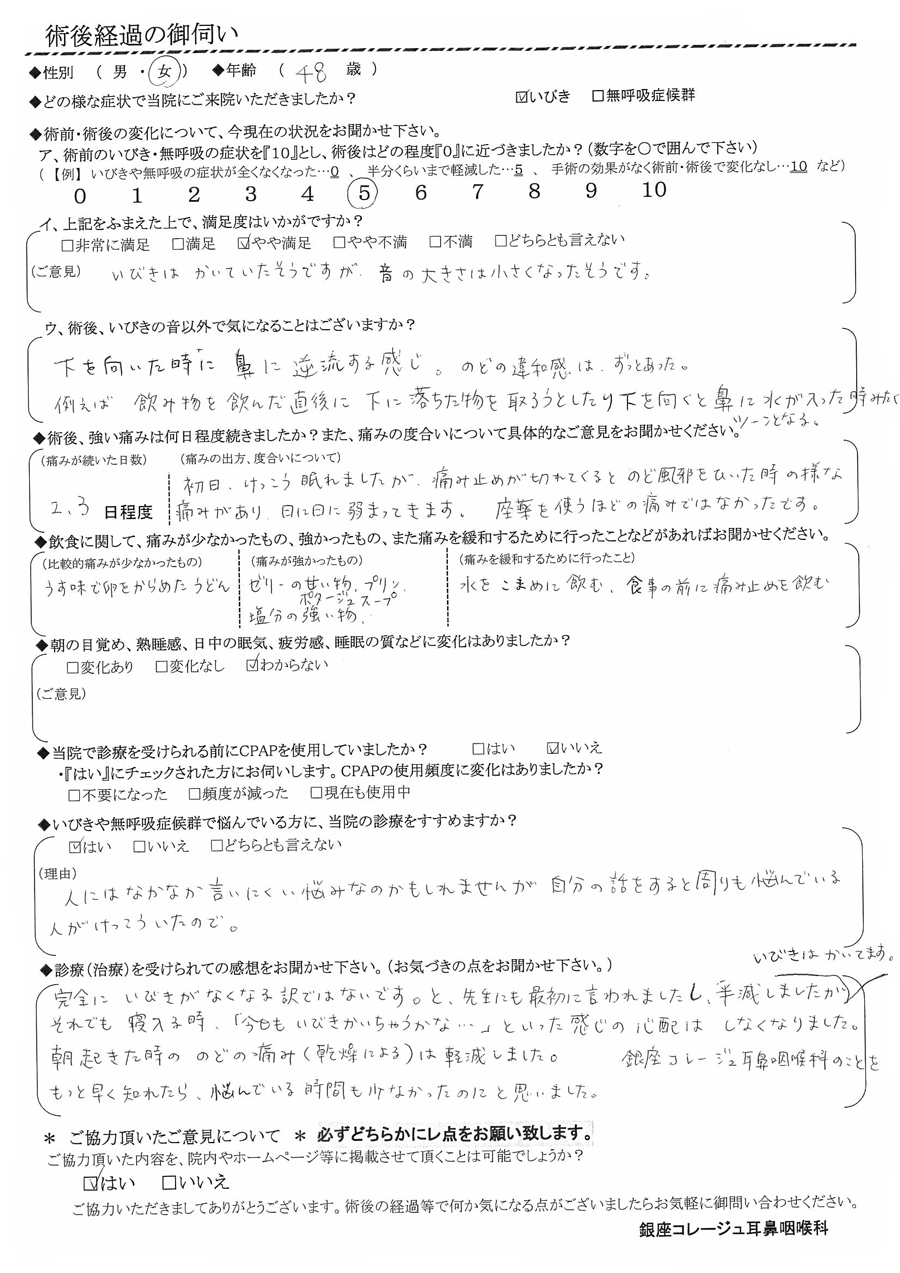 術後経過の御伺い
◆性別 ( 男 ・ 女 ) ◆年齢 ( 48 歳 )
◆どの様な症状で当院にご来院いただきましたか? ☑いびき □無呼吸症候群
◆術前・術後の変化について、今現在の状況をお聞かせ下さい。
ア、術前のいびき・無呼吸の症状を『10』とし、術後はどの程度『0』に近づきましたか?(数字を〇で囲んで下さい)
(【例】 いびきや無呼吸の症状が全くなくなった…0 、 半分くらいまで軽減した…5 、 手術の効果がなく術前・術後で変化なし…10 など)
0 1 2 3 4 5 6 7 8 9 10
イ、上記をふまえた上で、満足度はいかがですか?
□非常に満足 □満足 ☑やや満足 □やや不満 □不満 □どちらとも言えない
(ご意見) いびきは かいていたそうですが、音の大きさは小さくなったそうです。
ウ、術後、いびきの音以外で気になることはございますか?
下を向いた時に 鼻に 逆流する感じ。 のどの違和感は、ずっとあった。
例えば 飲み物を飲んだ直後に 下に落ちた物を取ろうとしたり下を向くと鼻に水が入った時みたく
ツーンとなる。
◆術後、強い痛みは何日程度続きましたか?また、痛みの度合いについて具体的なご意見をお聞かせください。
(痛みが続いた日数) (痛みの出方、度合いについて)
初日、けっこう眠れましたが、痛み止めが切れてくると のど風邪をひいた時の様な
2、3 日程度 痛みがあり、日に日に弱まってきます。 座薬を使うほどの痛みではなかったです。
◆飲食に関して、痛みが少なかったもの、強かったもの、また痛みを緩和するために行ったことなどがあればお聞かせください。
(比較的痛みが少なかったもの) (痛みが強かったもの) (痛みを緩和するために行ったこと)
うす味で卵をからめたうどん ゼリーの甘い物、プリン、 水を こまめに飲む、食事の前に痛み止めを飲む
ポタージュスープ
塩分の強い物、
◆朝の目覚め、熟睡感、日中の眠気、疲労感、睡眠の質などに変化はありましたか?
□変化あり □変化なし ☑わからない
(ご意見)
◆当院で診療を受けられる前にCPAPを使用していましたか? □はい ☑いいえ
・『はい』にチェックされた方にお伺いします。CPAPの使用頻度に変化はありましたか?
□不要になった □頻度が減った □現在も使用中
◆いびきや無呼吸症候群で悩んでいる方に、当院の診療をすすめますか?
☑はい □いいえ □どちらとも言えない
(理由)
人にはなかなか言いにくい悩みなのかもしれませんが 自分の話をすると周りも悩んでいる
人がけっこういたので。
◆診療(治療)を受けられての感想をお聞かせ下さい。(お気づきの点をお聞かせ下さい。)
いびきは かいてます。
完全に いびきがなくなる訳ではないです。と、先生にも最初に言われましたし、半減しましたが
それでも 寝入る時、「今日も いびきかいちゃうかな…」といった感じの 心配は しなくなりました。
朝起きた時の のどの痛み(乾燥による)は軽減しました。 銀座コレージュ耳鼻咽喉科のことを
もっと早く知れたら、悩んでいる時間も少なかったのにと思いました。
＊ ご協力頂いたご意見について ＊ 必ずどちらかにレ点をお願い致します。
ご協力頂いた内容を、院内やホームページ等に掲載させて頂くことは可能でしょうか?
☑はい □いいえ
ご協力いただきましてありがとうございます。術後の経過等で何か気になる点がございましたらお気軽に御問い合わせください。
銀座コレージュ耳鼻咽喉科